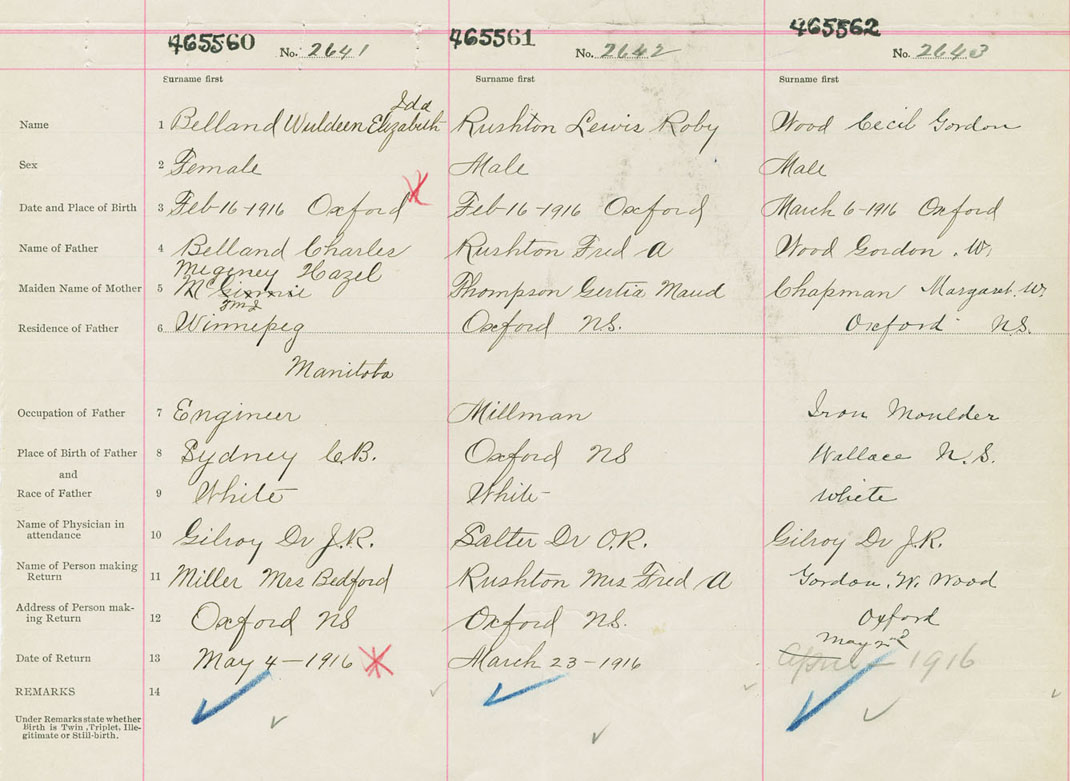 465560 No. 2641 465561 No. 2642 465562 No. 2643
Surname first Surname first Surname first
Ida
Name 1 Belland Wuldeen Elizabeth Rushton Lewis Roby Wood Cecil Gordon
Sex 2 Female Male Male
Date and Place of Birth 3 Feb-16-1916 Oxford Feb-16-1916 Oxford March 6-1916 Oxford
Name of Father 4 Belland Charles Rushton Fred A Wood Gordon. W.
Hazel
Maiden Name of Mother 5 Thompson Gertia Maud Chapman Margaret. W.
Residence of Father 6 Winnepeg Oxford NS. Oxford NS.
Manitoba
Occupation of Father 7 Engineer Millman Iron Moulder
Place of Birth of Father 8 Sydney C.B. Oxford NS Wallace N.S.
and
Race of Father 9 White White White
Name of Physician in
attendance 10 Gilroy Dr J.R. Salter Dr O.R. Gilroy Dr J.R.
Name of Person making
Return 11 Miller Mrs Bedford Rushton Mrs Fred A Gordon. W. Wood
Address of Person mak-
ing Return 12 Oxford NS Oxford NS. Oxford
May 2nd
Date of Return 13 May 4-1916 March 23-1916 April - 1916
REMARKS 14
Under Remarks state whether
Birth is Twin, Triplet, Ille-
gitimate or Still-birth.